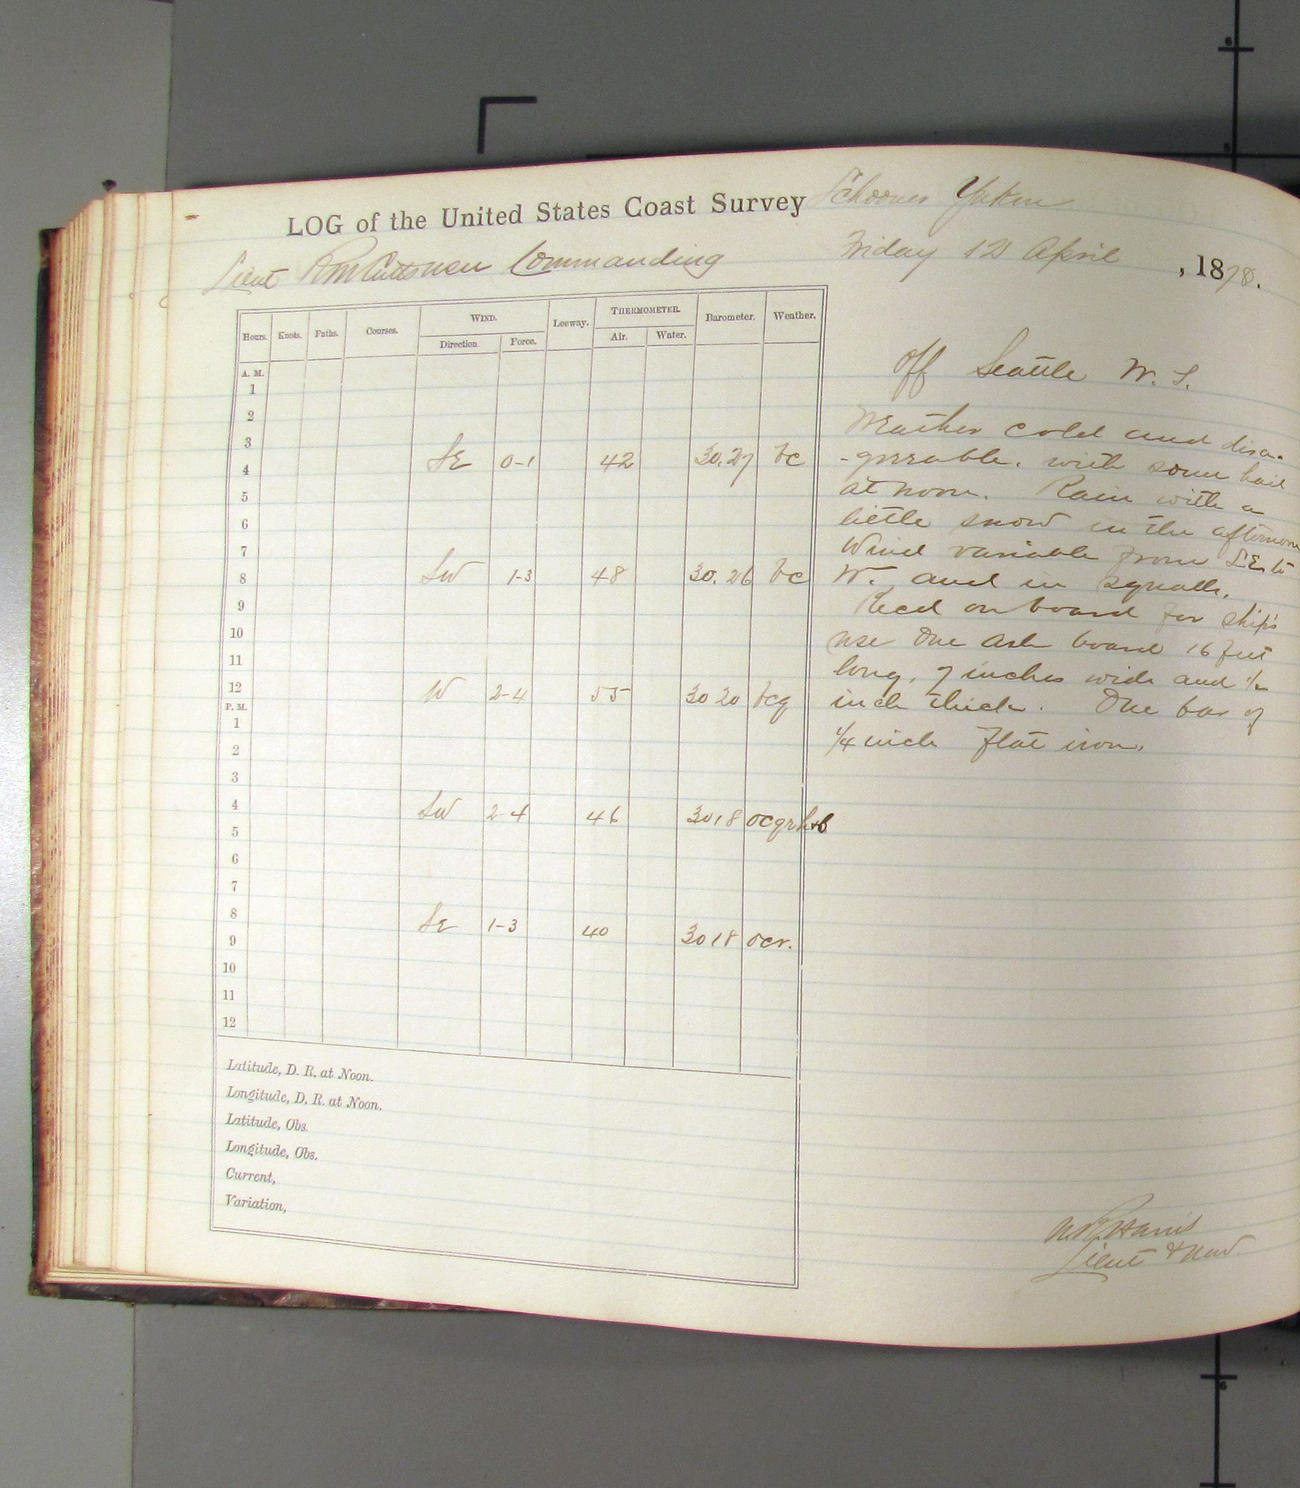 LOG of the United States Coast Survey Schooner Yukon
Lieut Commanding Friday 12 April , 1878.
Hours. Knots. Faths. Courses. WIND. Leeway. THERMOMETER. Barometer. Weather.
Direction Force. Air. Water.
A. M.
1
2
3
4 SE 0-1 42 30.27 bc
5
6
7
8 SW 1-3 48 30.26 bc
9
10
11
12 W 2-4 55 30 20 bcq
P. M.
1
2
3
4 SW 2-4 46 30 18 ocqrh
5
6
7
8 SE 1-3 40 30 18 ocr.
9
10
11
12
Latitude, D. R. at Noon.
Longitude, D. R. at Noon.
Latitude, Obs.
Longitude, Obs.
Current,
Variation,
Off Seattle W. T.
Weather cold and disa-
-greeable. with some hail
at noon. Rain with a
little snow in the afternoon
Wind variable from SE to
W. and in squalls.
Recd on board for ship's
use One Ash board 16 feet
long, 7 inches wide and ½
inch thick. One bar of
¼ inch flat iron.
Harris
Lieut & Nav.